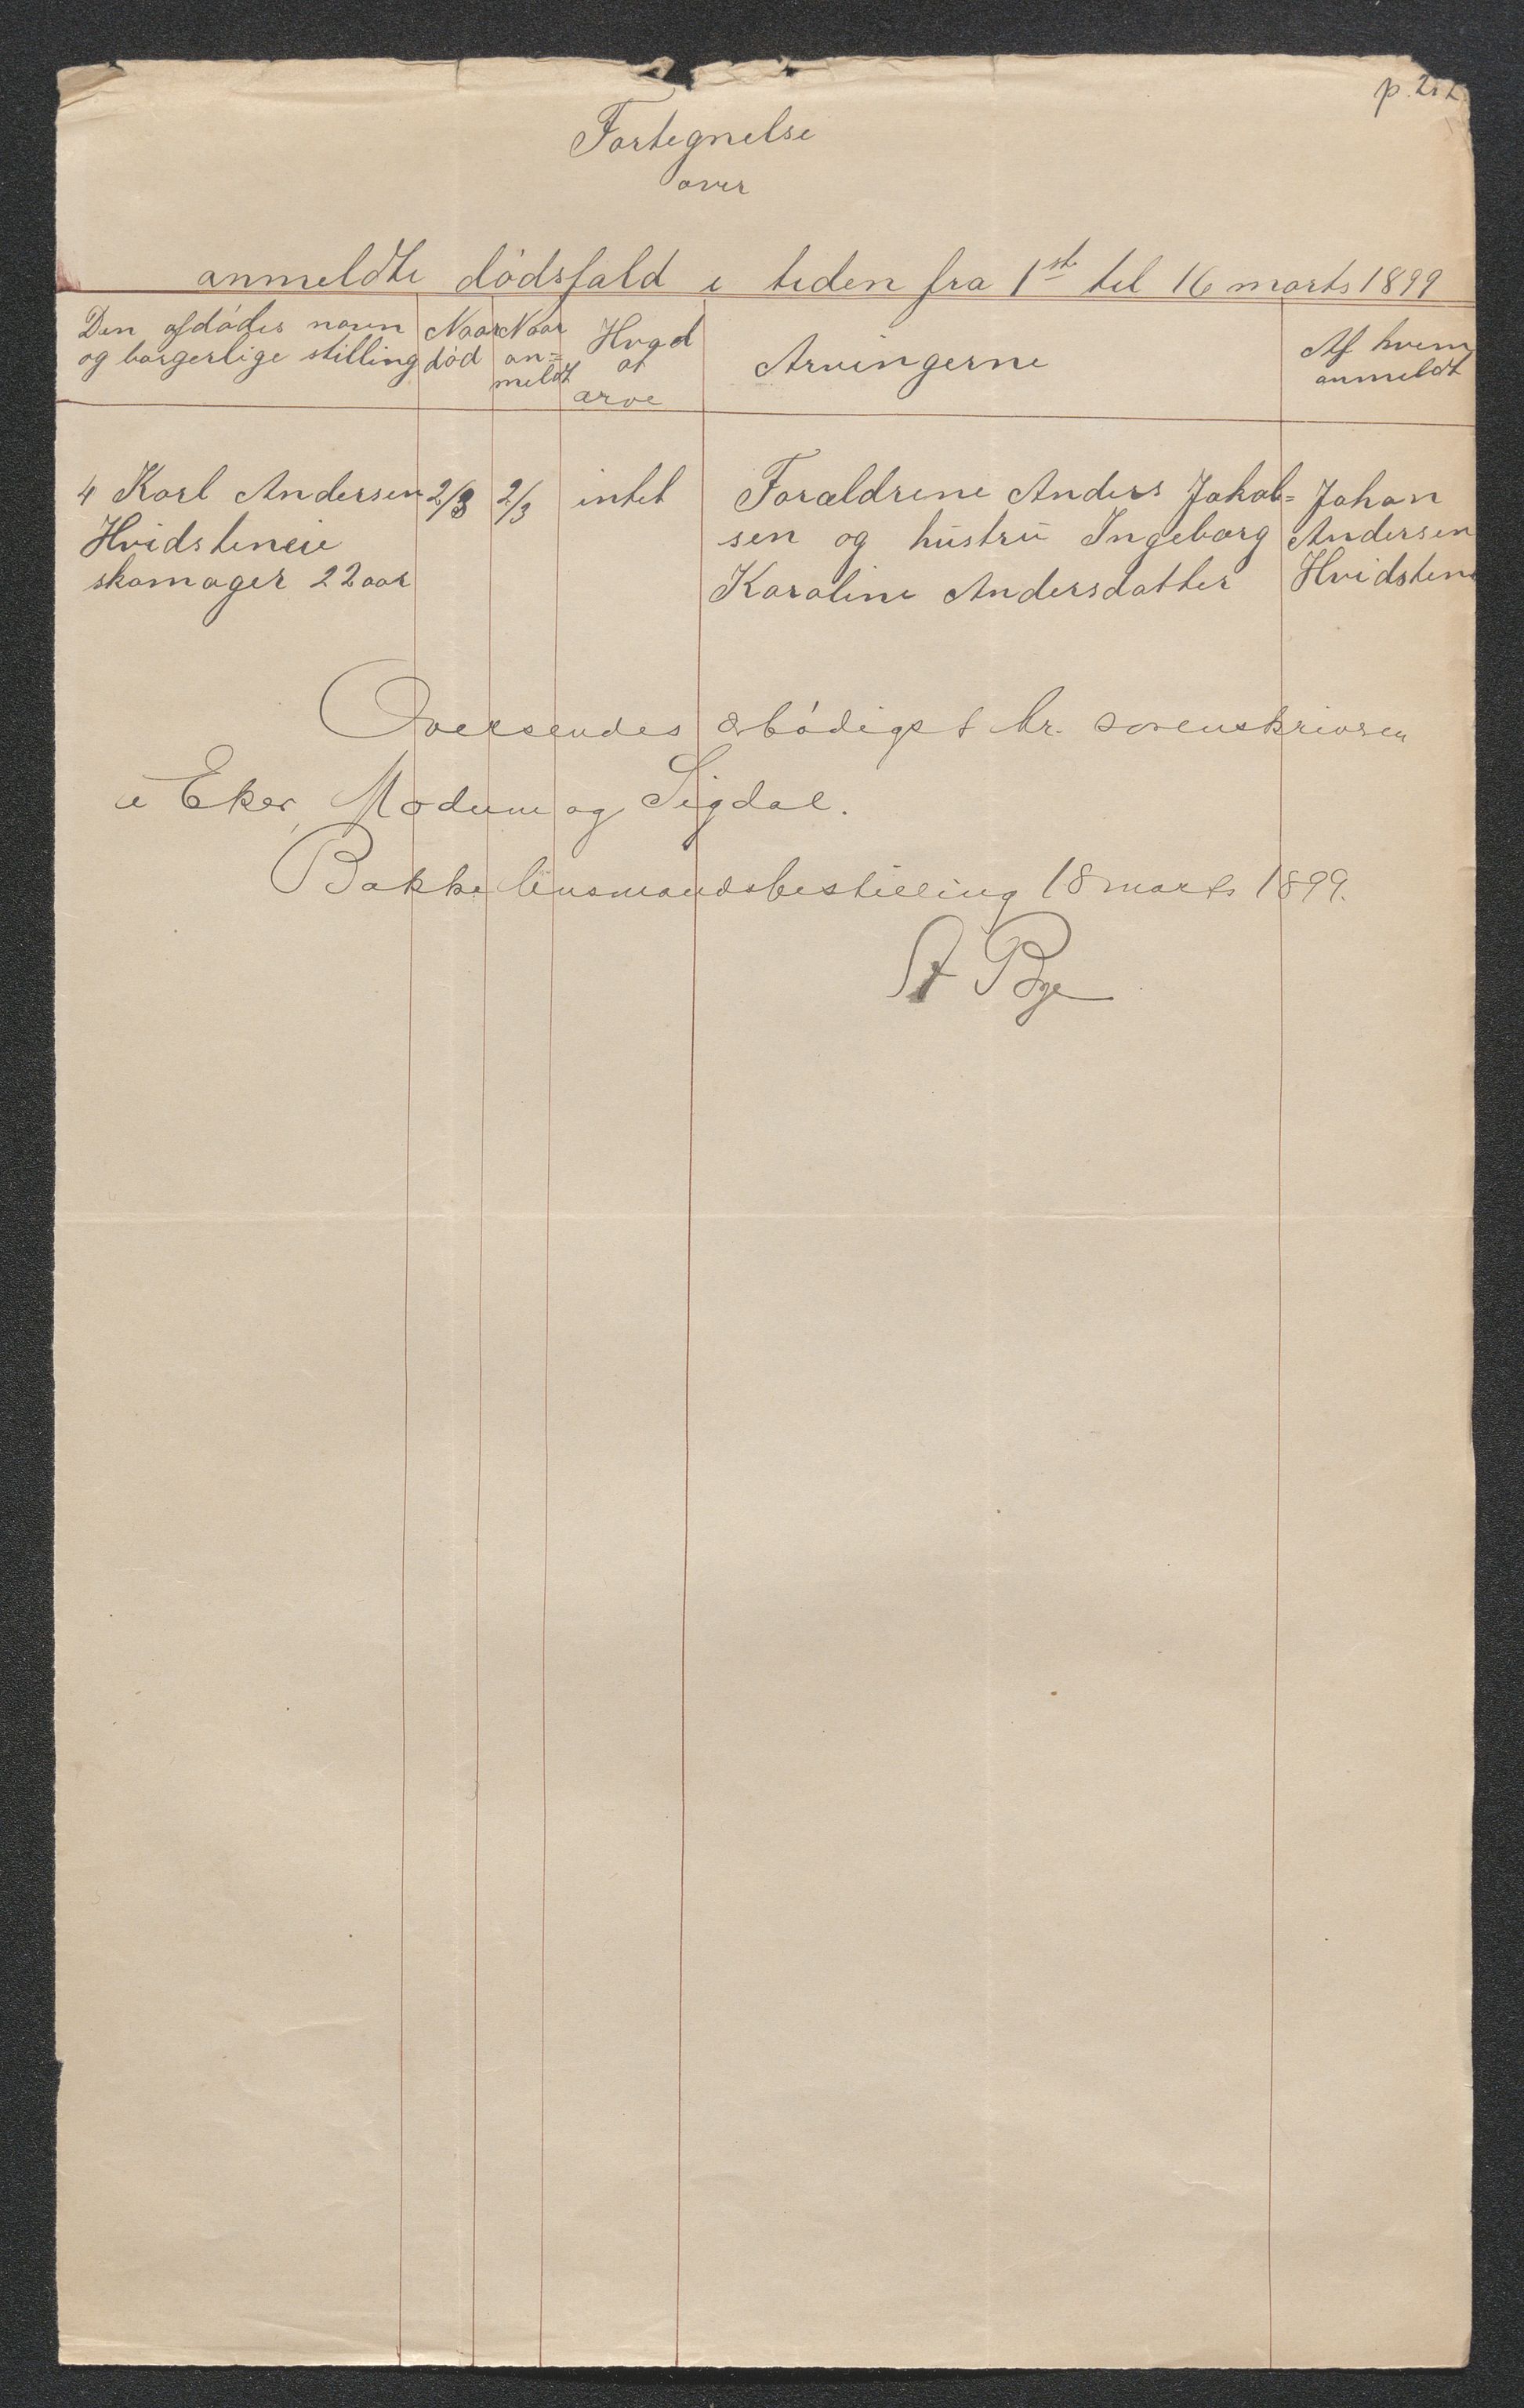 p. 212
Fortegnelse
over
anmeldte dödsfald i tiden fra 1ste til 16 marts 1899
Den afdödes navn og borgerlige stilling
Naar död
Naar an= meldt
Hvad at arve
Arvingerne
Af hvem anmeldt
4 Karl Andersen 2/3 2/3 intet Forældrene Anders Jakob= Johan
Hvidsteneie sen og hustru Ingeborg Andersen
skomager 22 aar Karoline Andersdatter Hvidstene
Oversendes ærbödigst hr. sorenskriveren
i Eker, Modum og Sigdal.
Bakke lensmandsbestilling 18 marts 1899.